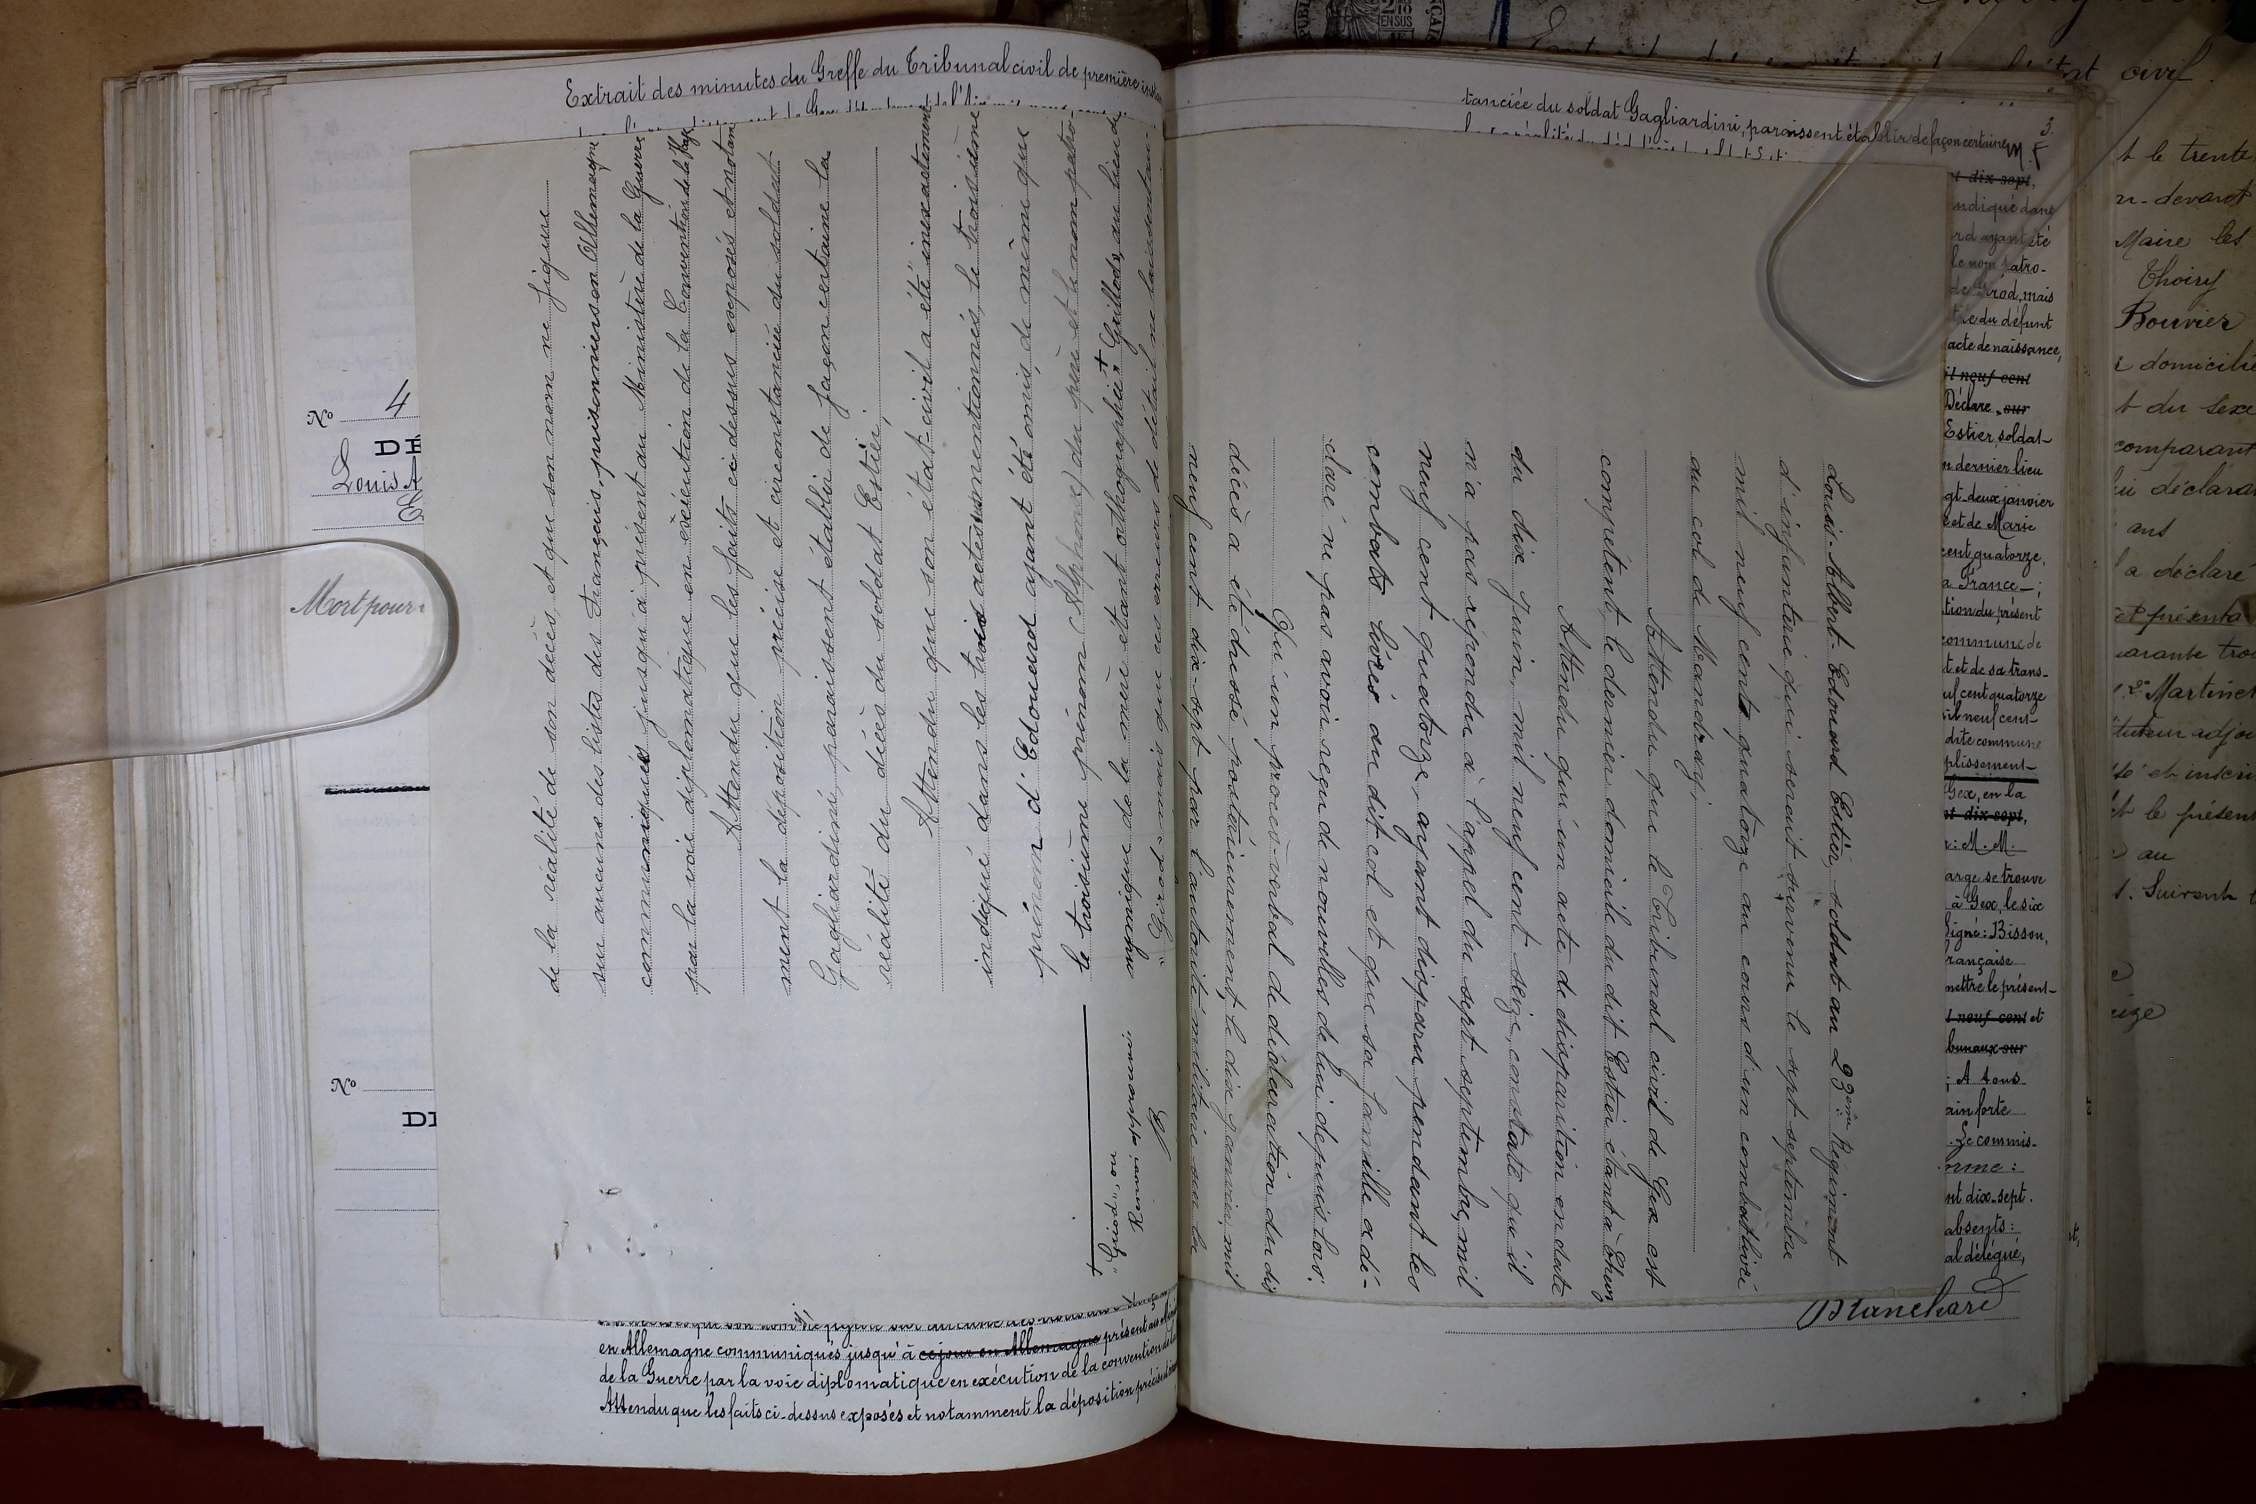 Extrait des minutes du Greffe du Tribunal civil de première instan
No 4
DÉ
Louis A
E
Mort pour
No
DE
de la réalité de son décès, et que son nom ne figure
sur aucune des listes des Français, prisonniers en Allemagne
communiqués jusqu'à présent au Ministère de la Guerre
par la voie diplomatique en exécution de la Convention de la Haye
Attendu que les faits ci-dessus exposés et notam
ment la déposition précise et circonstanciée du soldat
Gagliardini, paraissent établir de façon certaine la
réalité du décès du soldat Estier;
Attendu que son état-civil a été inexactement
indiqué dans les trois actes susmentionnés, le troisième
prénom d'Edouard ayant été omis, de même que
le troisième prénom (Alphonse) du père et le nom patro-
nymique de la mère étant orthographié + Guillods, au lieu de
"Girod" mais que ces erreurs de détail ne laissent
+ "Griod", ou
Renvoi approuvé:
en Allemagne communiqués jusqu'à ce jour en Allemagne présent au Mini
de la Guerre par la voie diplomatique en exécution de la convention de la
Attendu que les faits ci-dessus exposés et notamment la déposition précise
tanciée du soldat Gagliardini, paraissent établir de façon certaine
3.
Louis-Albert-Edouard Estier, soldat au 23ème Régiment
d'infanterie qui serait survenu le sept septembre
mil neuf cent quatorze au cours d'un combat livré
au col de Mandray;
Attendu que le Tribunal civil de Gex est
compétent, le dernier domicile du dit Estier étant à Thoiry
Attendu qu'un acte de disparition en date
du dix Juin, mil neuf cent seize, constate qu'il
n'a pas répondu à l'appel du sept septembre, mil
neuf cent quatorze, ayant disparu pendant les
combats livrés au dit col et que sa famille a dé-
claré ne pas avoir reçu de nouvelles de lui depuis lors.
Qu'un procès-verbal de déclaration du dis
décès a été dressé postérieurement, le dix janvier, mil
neuf cent dix-sept par l'autorité militaire sur la
t dix sept,
ndiqué dans
rd ayant été
le nom patro-
de Girod, mais
du défunt
acte de naissance,
il neuf cent
Déclare, sur
Estier, soldat
n dernier lieu
gt-deux janvier
e et de Marie
cent quatorze,
a France-;
tion du présent
commune de
t et de sa trans-
uf cent quatorze
il neuf cent-
dite commune
plissement-
Gex, en la
nt dix-sept,
: M. M.
arge se trouve
à Gex, le six
Signé: Bisson,
rançaise
mettre le présent-
l neuf cent et
bunaux sur
; A tous
ain forte
. Le commis-
orme:
nt dix-sept.
absents:
al délégué,
Blanchard
civil.
t le trente
n-devant
Maire les
Thoiry
Bouvier
domicilié
t du sexe
comparant
déclara
ans
a déclaré
présenta
arante trois
Martinet
tuteur adjoi
et inscri
le présent
au
Suivent